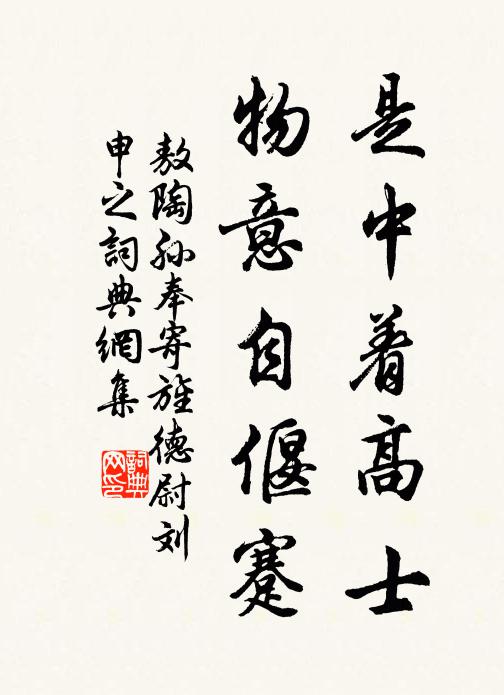 是中着高士
物意自偃蹇
敖陶孙奉寄旌德尉刘
申之詞典網集
詞典网印